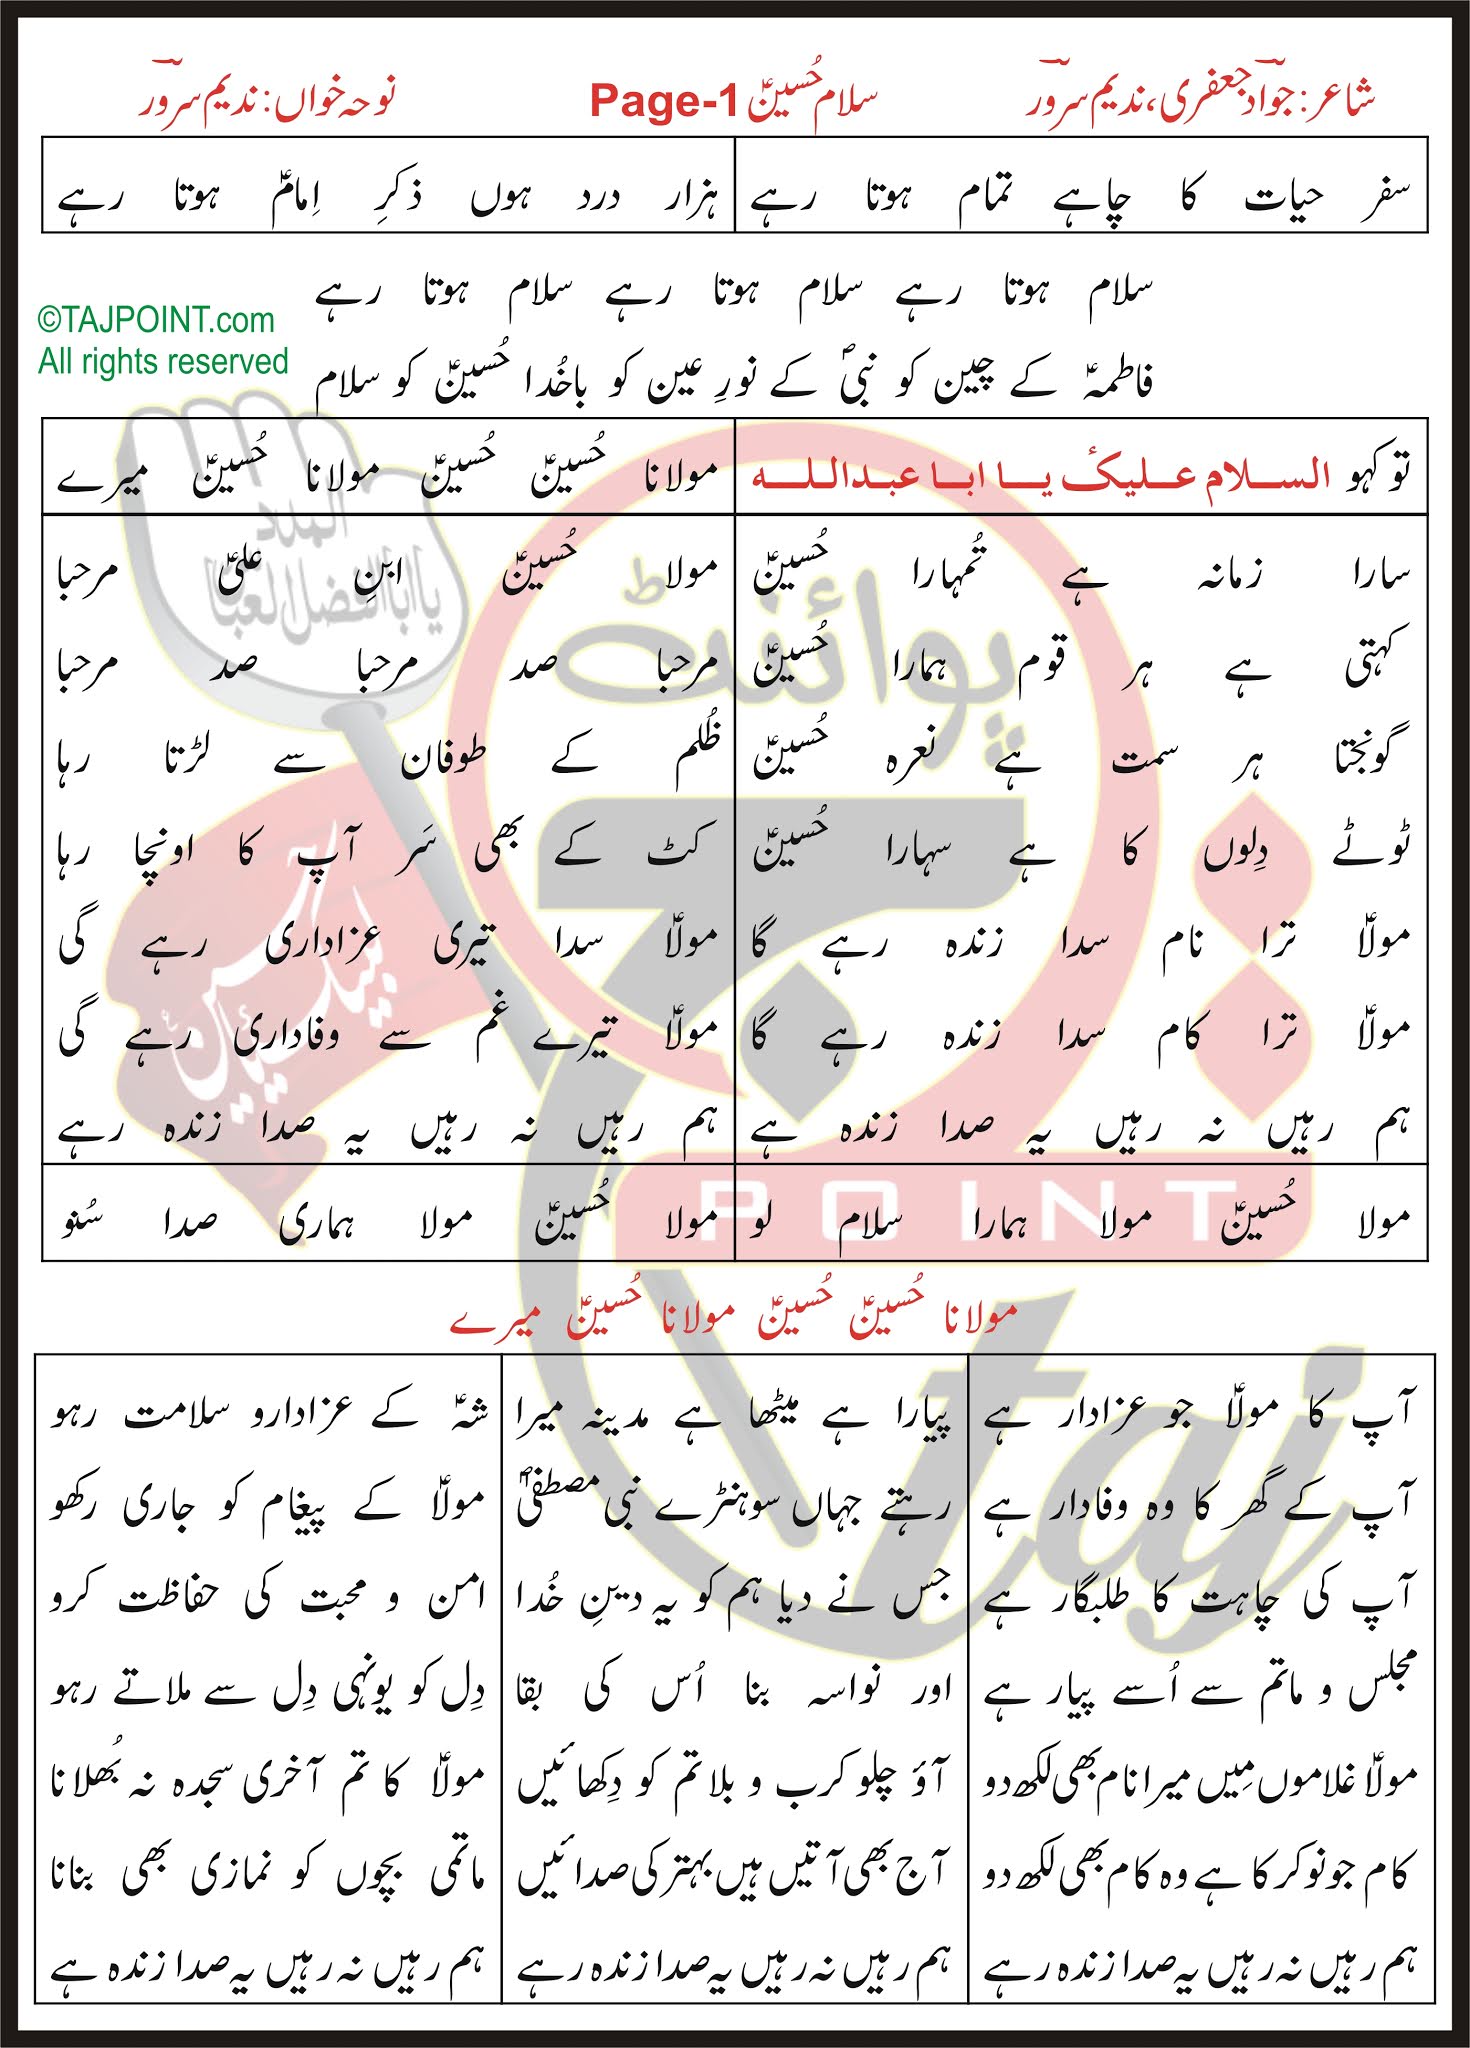 شاعر: جوادؔ جعفری، ندیم سرورؔ
سلام حُسینؑ Page-1
نوحہ خواں: ندیم سرورؔ
سفر حیات کا چاہے تمام ہوتا رہے
ہزار درد ہوں ذکرِ اِمامؑ ہوتا رہے
سلام ہوتا رہے سلام ہوتا رہے سلام ہوتا رہے
©TAJPOINT.com
All rights reserved
فاطمہؑ کے چین کو نبیؐ کے نورِ عین کو باخُدا حُسینؑ کو سلام
تو کہو السلام علیک یا ابا عبداللہ
مولانا حُسینؑ حُسینؑ مولانا حُسینؑ میرے
سارا زمانہ ہے تُمہارا حُسینؑ
کہتی ہے ہر قوم ہمارا حُسینؑ
گونجتا ہر سمت ہے نعرہ حُسینؑ
ٹوٹے دِلوں کا ہے سہارا حُسینؑ
مولاؑ ترا نام سدا زندہ رہے گا
مولاؑ ترا کام سدا زندہ رہے گا
ہم رہیں نہ رہیں یہ صدا زندہ ہے
مولا حُسینؑ ابنِ علیؑ مرحبا
مرحبا صد مرحبا صد مرحبا
ظُلم کے طوفان سے لڑتا رہا
کٹ کے بھی سَر آپ کا اونچا رہا
مولاؑ سدا تیری عزاداری رہے گی
مولاؑ تیرے غم سے وفاداری رہے گی
ہم رہیں نہ رہیں یہ صدا زندہ رہے
مولا حُسینؑ مولا ہمارا سلام لو
مولا حُسینؑ مولا ہماری صدا سُنو
مولانا حُسینؑ حُسینؑ مولانا حُسینؑ میرے
آپ کا مولاؑ جو عزادار ہے
آپ کے گھر کا وہ وفادار ہے
آپ کی چاہت کا طلبگار ہے
مجلس و ماتم سے اُسے پیار ہے
مولاؑ غلاموں مِیں میرا نام بھی لکھ دو
کام جو نوکر کا ہے وہ کام بھی لکھ دو
ہم رہیں نہ رہیں یہ صدا زندہ رہے
پیارا ہے میٹھا ہے مدینہ میرا
رہتے جہاں سوہنڑے نبی مصطفیٰؐ
جس نے دیا ہم کو یہ دینِ خُدا
اور نواسہ بنا اُس کی بقا
آؤ چلو کرب و بلا تم کو دِکھائیں
آج بھی آتیں ہیں بہتر کی صدائیں
ہم رہیں نہ رہیں یہ صدا زندہ رہے
شہؑ کے عزادارو سلامت رہو
مولاؑ کے پیغام کو جاری رکھو
امن و محبت کی حفاظت کرو
دِل کو یونہی دِل سے ملاتے رہو
مولاؑ کا تم آخری سجدہ نہ بُھلانا
ماتمی بچوں کو نمازی بھی بنانا
ہم رہیں نہ رہیں یہ صدا زندہ ہے
پوائنٹ
POINT
taj
لبیک یا حسین
یا اباالفضل العباس